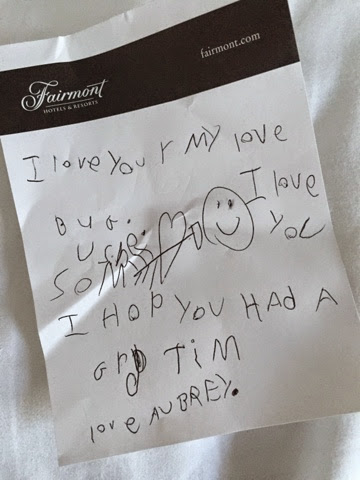 Fairmont
HOTELS & RESORTS
fairmont.com
I love you r my love
BUG.
U
SO
I love
you
I HOP YOU HAD A
TiM
love AUBREY.